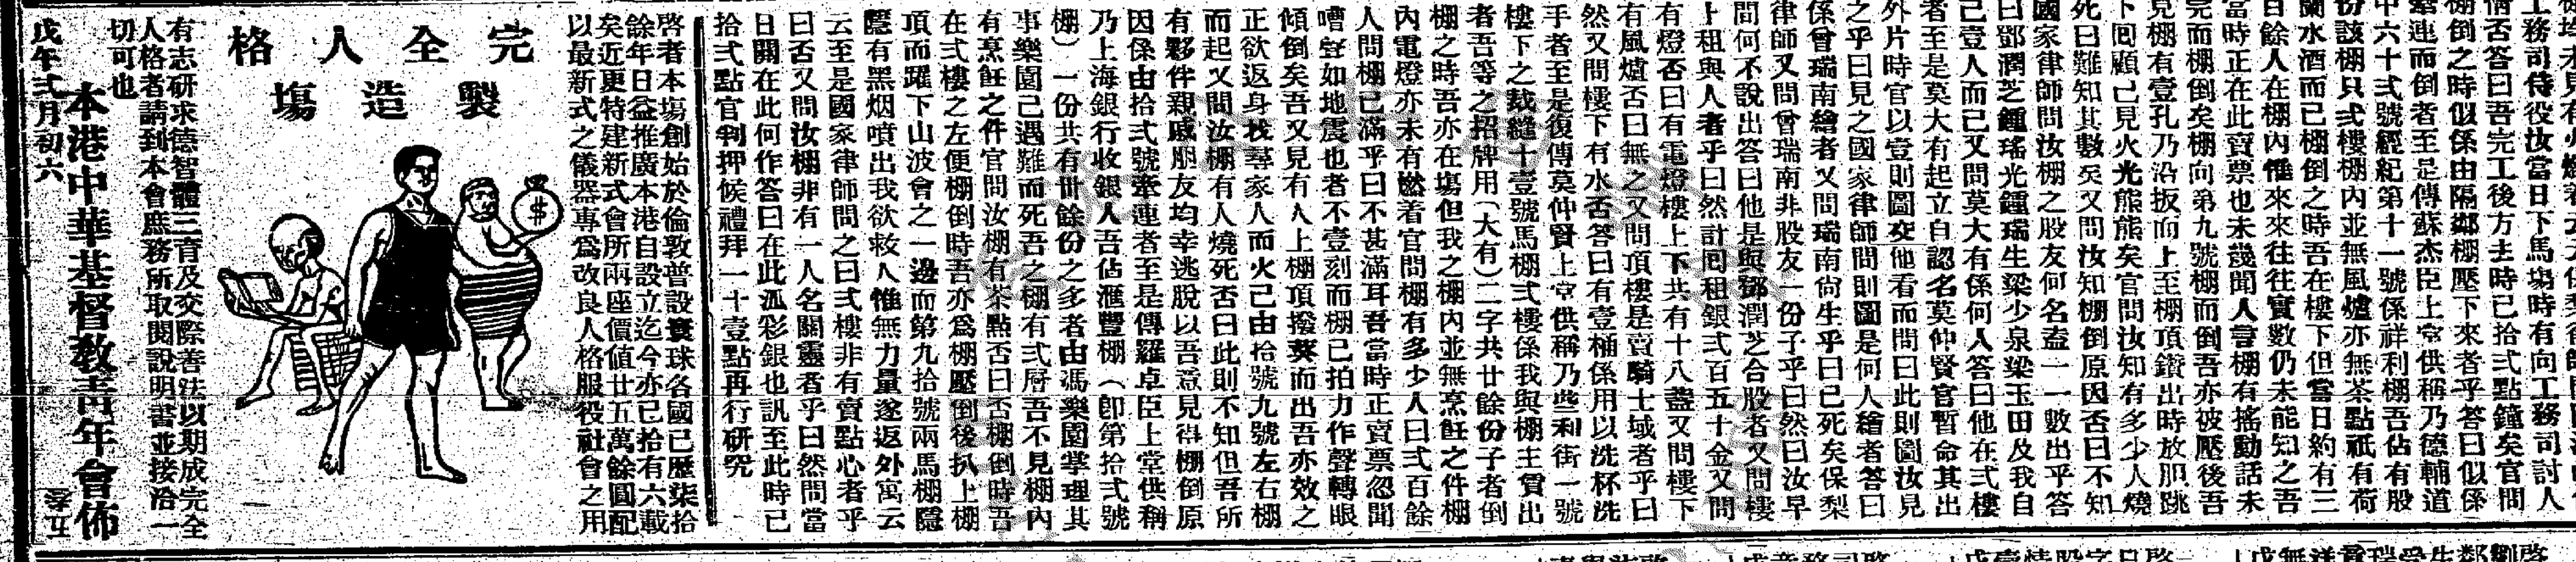 工務司侍役汝當日下馬塲時有向工務司討人
情否答曰吾完工後方去時已拾弍點鐘矣官問
棚倒之時似係由隔鄰棚壓下來者乎答曰似係
牽連而倒者至是傳蘇杰臣上堂供稱乃德輔道
中六十弍號經紀第十一號係祥利棚吾佔有股
份該棚只弍樓棚內並無風爐亦無茶點祇有荷
蘭水酒而已棚倒之時吾在樓下但當日約有三
百餘人在棚內惟來來往往實數仍未能知之吾
當時正在此賣票也未幾聞人言棚有搖動話未
完而棚倒矣棚向第九號棚而倒吾亦被壓後吾
見棚有壹孔乃沿扳而上至棚頂鑽出時放胆跳
下回顧已見火光熊熊矣官問汝知有多少人燒
死曰難知其數矣又問汝知棚倒原因否曰不知
國家律師問汝棚之股友何名盍一一數出乎答
曰鄧潤芝鍾瑤光鍾瑞生梁少泉梁玉田及我自
己壹人而已又問莫大有係何人答曰他在弍樓
者至是莫大有起立自認名莫仲賢官暫命其出
外片時官以壹則圖交他看而問曰此則圖汝見
之乎曰見之國家律師問則圖是何人繪者答曰
係曾瑞南繪者又問瑞南尙生乎曰已死矣保梨
律師又問曾瑞南非股友一份子乎曰然曰汝早
問何不說出答曰他是與鄧潤芝合股者又問樓
上租與人者乎曰然計囘租銀弍百五十金又問
有燈否曰有電燈樓上下共有十八盞又問樓下
有風爐否曰無之又問頂樓是賣騎士域者乎曰
然又問樓下有水否答曰有壹桶係用以洗杯洗
手者至是復傳莫仲賢上堂供稱乃些利街一號
樓下之裁縫十壹號馬棚弍樓係我與棚主賃出
者吾等之招牌用(大有)二字共廿餘份子者倒
棚之時吾亦在塲但我之棚內並無烹飪之件棚
內電燈亦未有燃着官問棚有多少人曰弍百餘
人問棚已滿乎曰不甚滿耳吾當時正賣票忽聞
嘈聲如地震也者不壹刻而棚已拍力作聲轉眼
傾倒矣吾又見有人上棚頂撥葵而出吾亦效之
正欲返身找羣家人而火已由拾號九號左右棚
而起又問汝棚有人燒死否曰此則不知但吾所
有夥伴親戚朋友均幸逃脫以吾意見得棚倒原
因係由拾弍號牽連者至是傳羅卓臣上堂供稱
乃上海銀行收銀人吾佔滙豐棚(即第拾弍號
棚)一份共有卅餘份之多者由馮樂園掌理其
事樂園已遇難而死吾之棚有弍層吾不見棚內
有烹飪之件官問汝棚有茶點否曰否棚倒時吾
在弍樓之左便棚倒時吾亦爲棚壓倒後扒上棚
頂而躍下山波會之一邊而第九拾號兩馬棚隱
隱有黑烟噴出我欲救人惟無力量遂返外寓云
云至是國家律師問之曰弍樓非有賣點心者乎
曰否又問汝棚非有一人名關靈者乎曰然問當
日關在此何作答曰在此派彩銀也訊至此時已
拾弍點官判押候禮拜一十壹點再行研究
啓者本塲創始於倫敦普設寰球各國已歷柒拾
餘年日益推廣本港自設立迄今亦已拾有六載
矣近更特建新式會所兩座價值廿五萬餘圓配
以最新式之儀器專爲改良人格服役社會之用
完全人格
製造塲
$
有志硏求德智體三育及交際善法以期成完全
人格者請到本會庶務所取閱說明書並接洽一
切可也
本港中華基督教靑年會佈
戊年弍月初六